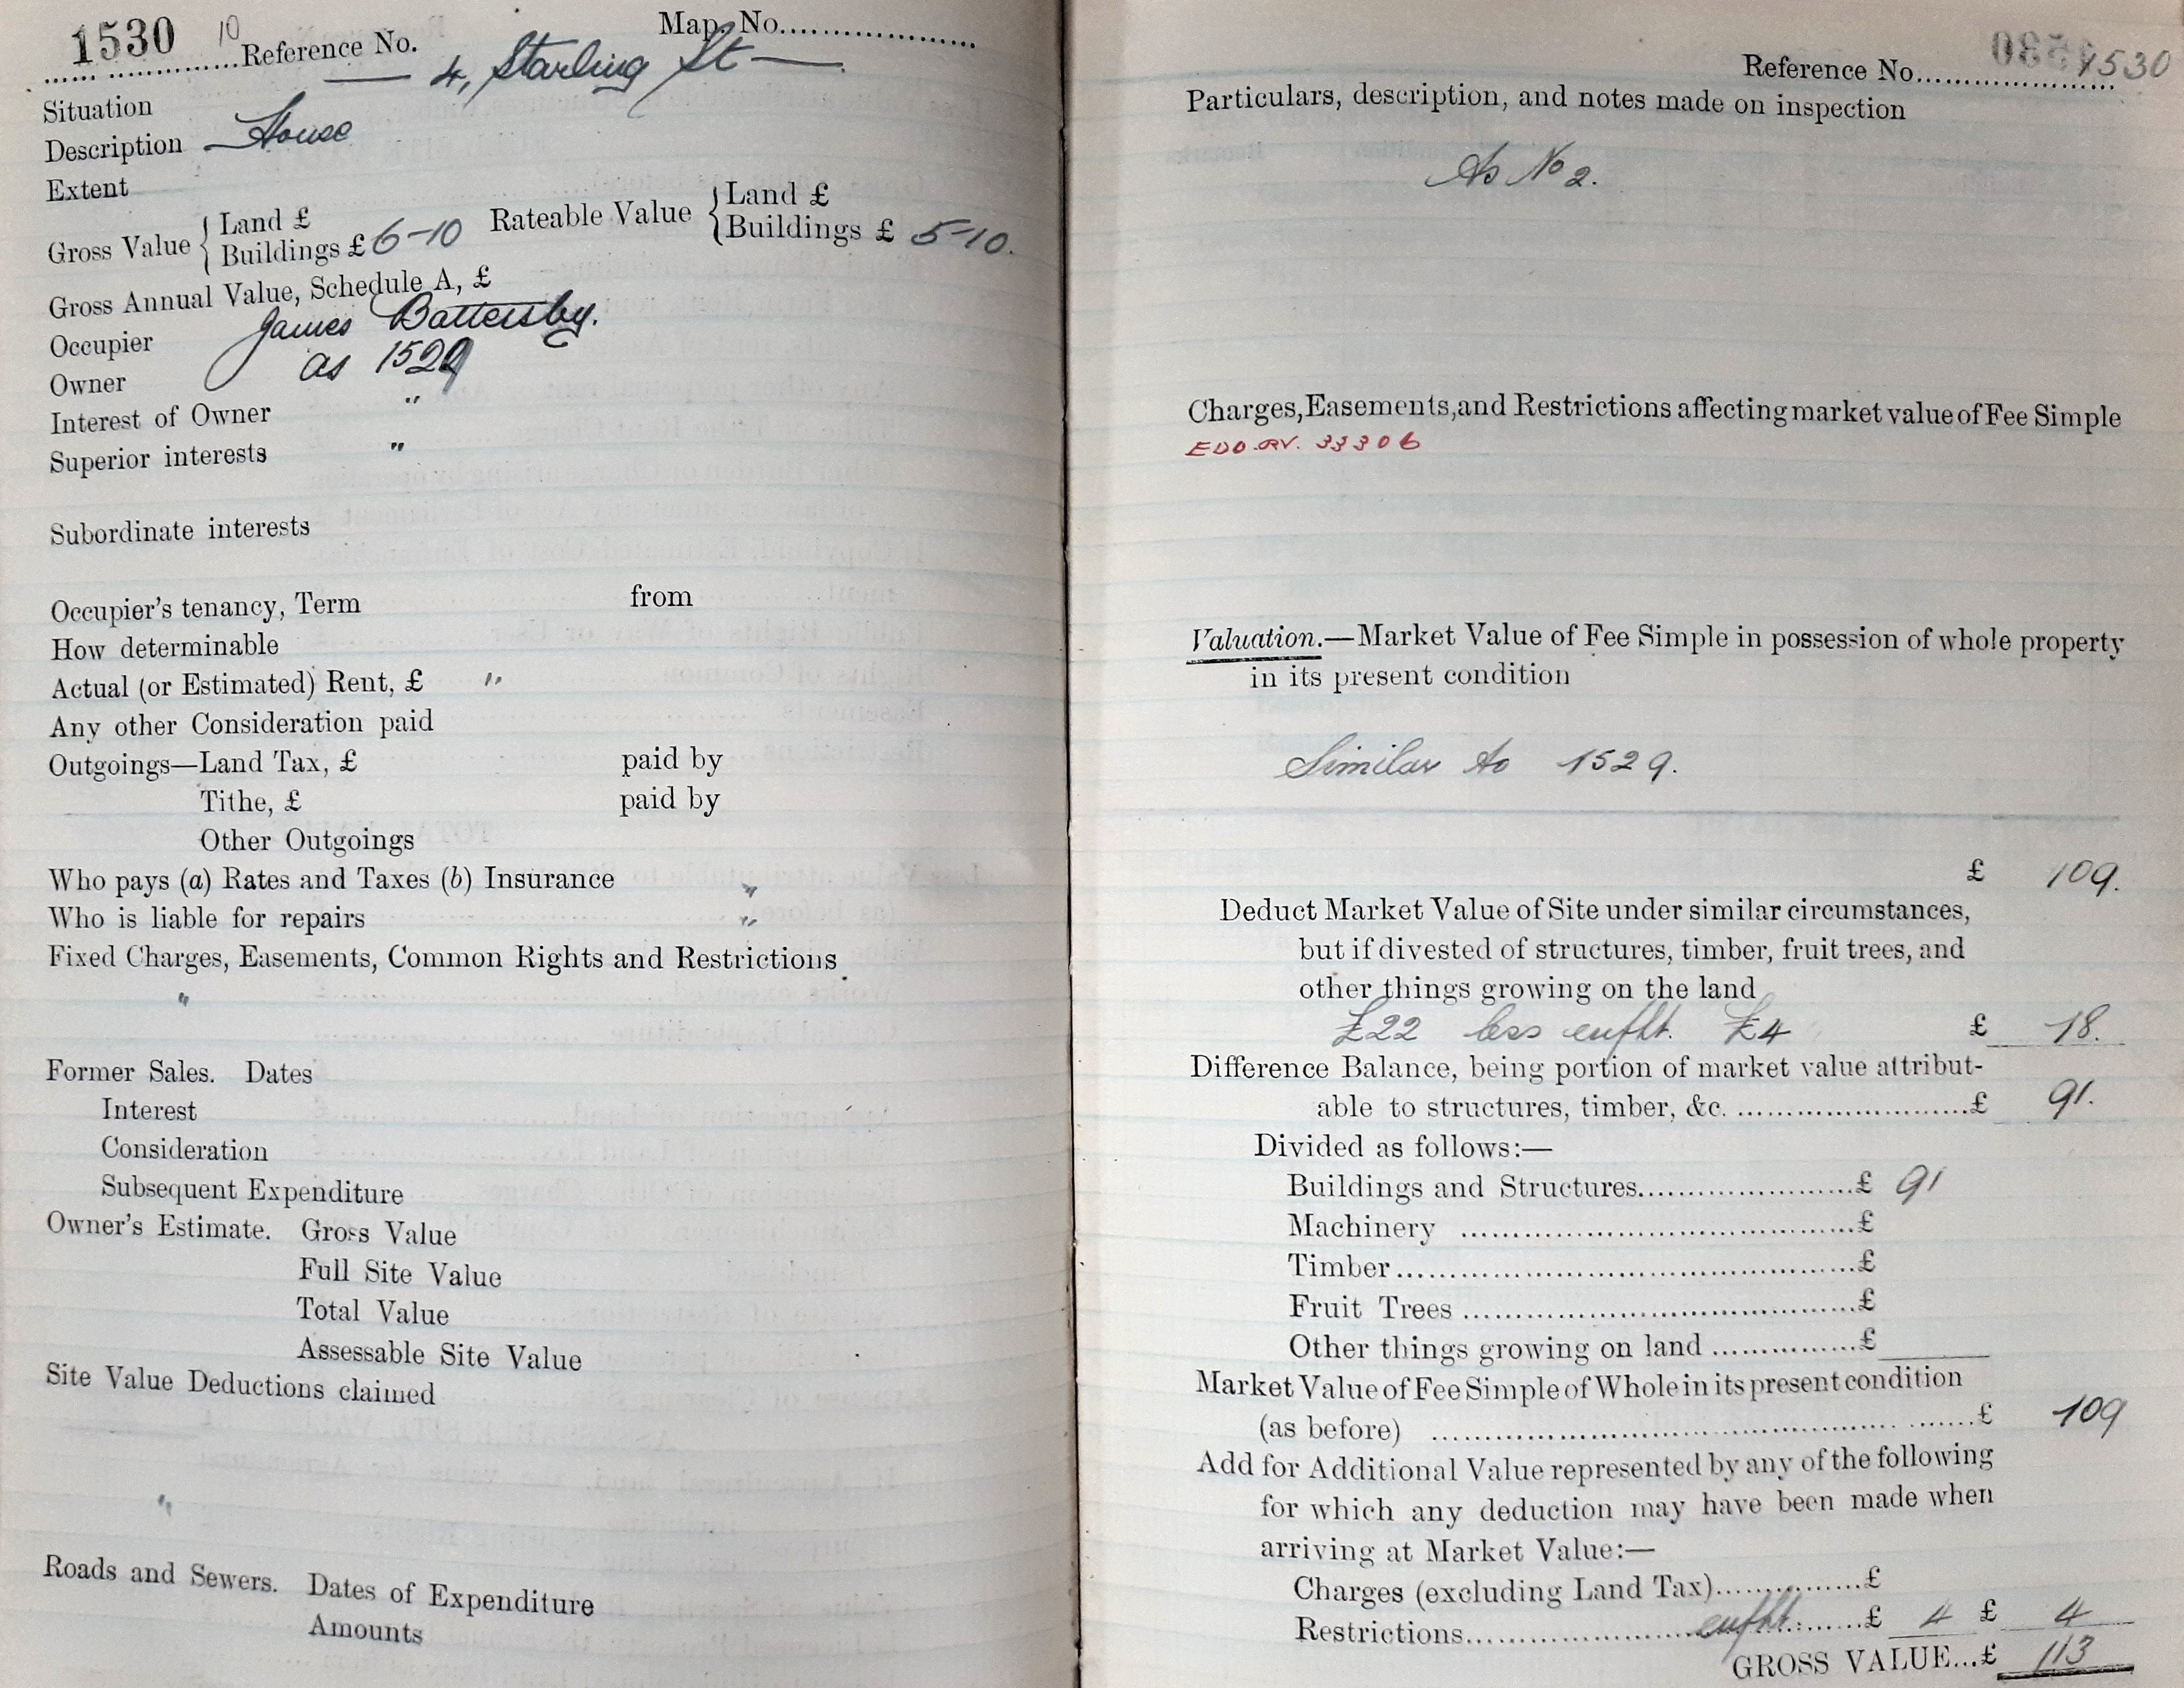 1530 10 Reference No. Map. No.
4, Starling St
Situation
Description House
Extent
Gross Value { Land £ Rateable Value { Land £
Buildings £ 6-10 Buildings £ 5-10.
Gross Annual Value, Schedule A, £
Occupier James Battersby.
Owner as 1529
Interest of Owner "
Superior interests "
Subordinate interests
Occupier's tenancy, Term from
How determinable
Actual (or Estimated) Rent, £ "
Any other Consideration paid
Outgoings—Land Tax, £ paid by
Tithe, £ paid by
Other Outgoings
Who pays (a) Rates and Taxes (b) Insurance "
Who is liable for repairs "
Fixed Charges, Easements, Common Rights and Restrictions
"
Former Sales. Dates
Interest
Consideration
Subsequent Expenditure
Owner's Estimate. Gross Value
Full Site Value
Total Value
Assessable Site Value
Site Value Deductions claimed
"
Roads and Sewers. Dates of Expenditure
Amounts
Reference No. 1530
Particulars, description, and notes made on inspection
As No 2.
Charges, Easements, and Restrictions affecting market value of Fee Simple
33306
Valuation.—Market Value of Fee Simple in possession of whole property
in its present condition
Similar to 1529.
£ 109.
Deduct Market Value of Site under similar circumstances,
but if divested of structures, timber, fruit trees, and
other things growing on the land
£22 less eufht. £4 £ 18.
Difference Balance, being portion of market value attribut-
able to structures, timber, &c. £ 91.
Divided as follows:—
Buildings and Structures £ 91
Machinery £
Timber £
Fruit Trees £
Other things growing on land £
Market Value of Fee Simple of Whole in its present condition
(as before) £ 109
Add for Additional Value represented by any of the following
for which any deduction may have been made when
arriving at Market Value:—
Charges (excluding Land Tax) £
Restrictions eufht. £ 4 £ 4
GROSS VALUE...£ 113